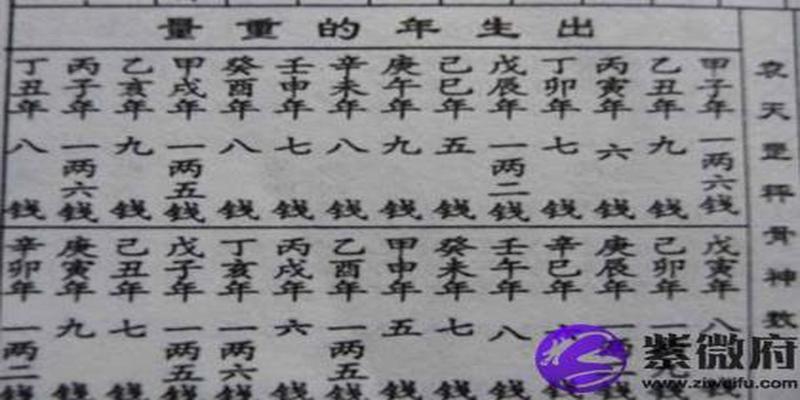 袁天罡秤骨神数
出生年的重量
甲子年 一两六钱
乙丑年 九钱
丙寅年 六钱
丁卯年 七钱
戊辰年 一两二钱
己巳年 五钱
庚午年 九钱
辛未年 八钱
壬申年 七钱
癸酉年 八钱
甲戌年 一两五钱
乙亥年 九钱
丙子年 一两六钱
丁丑年 八钱
戊寅年 八
己卯年
庚辰年
辛巳年
壬午年 八钱
癸未年 七钱
甲申年 五钱
乙酉年 一两五钱
丙戌年 六钱
丁亥年 一两六钱
戊子年 一两五钱
己丑年 七钱
庚寅年 九钱
辛卯年 一两二钱
紫微府
www.ziweifu.com